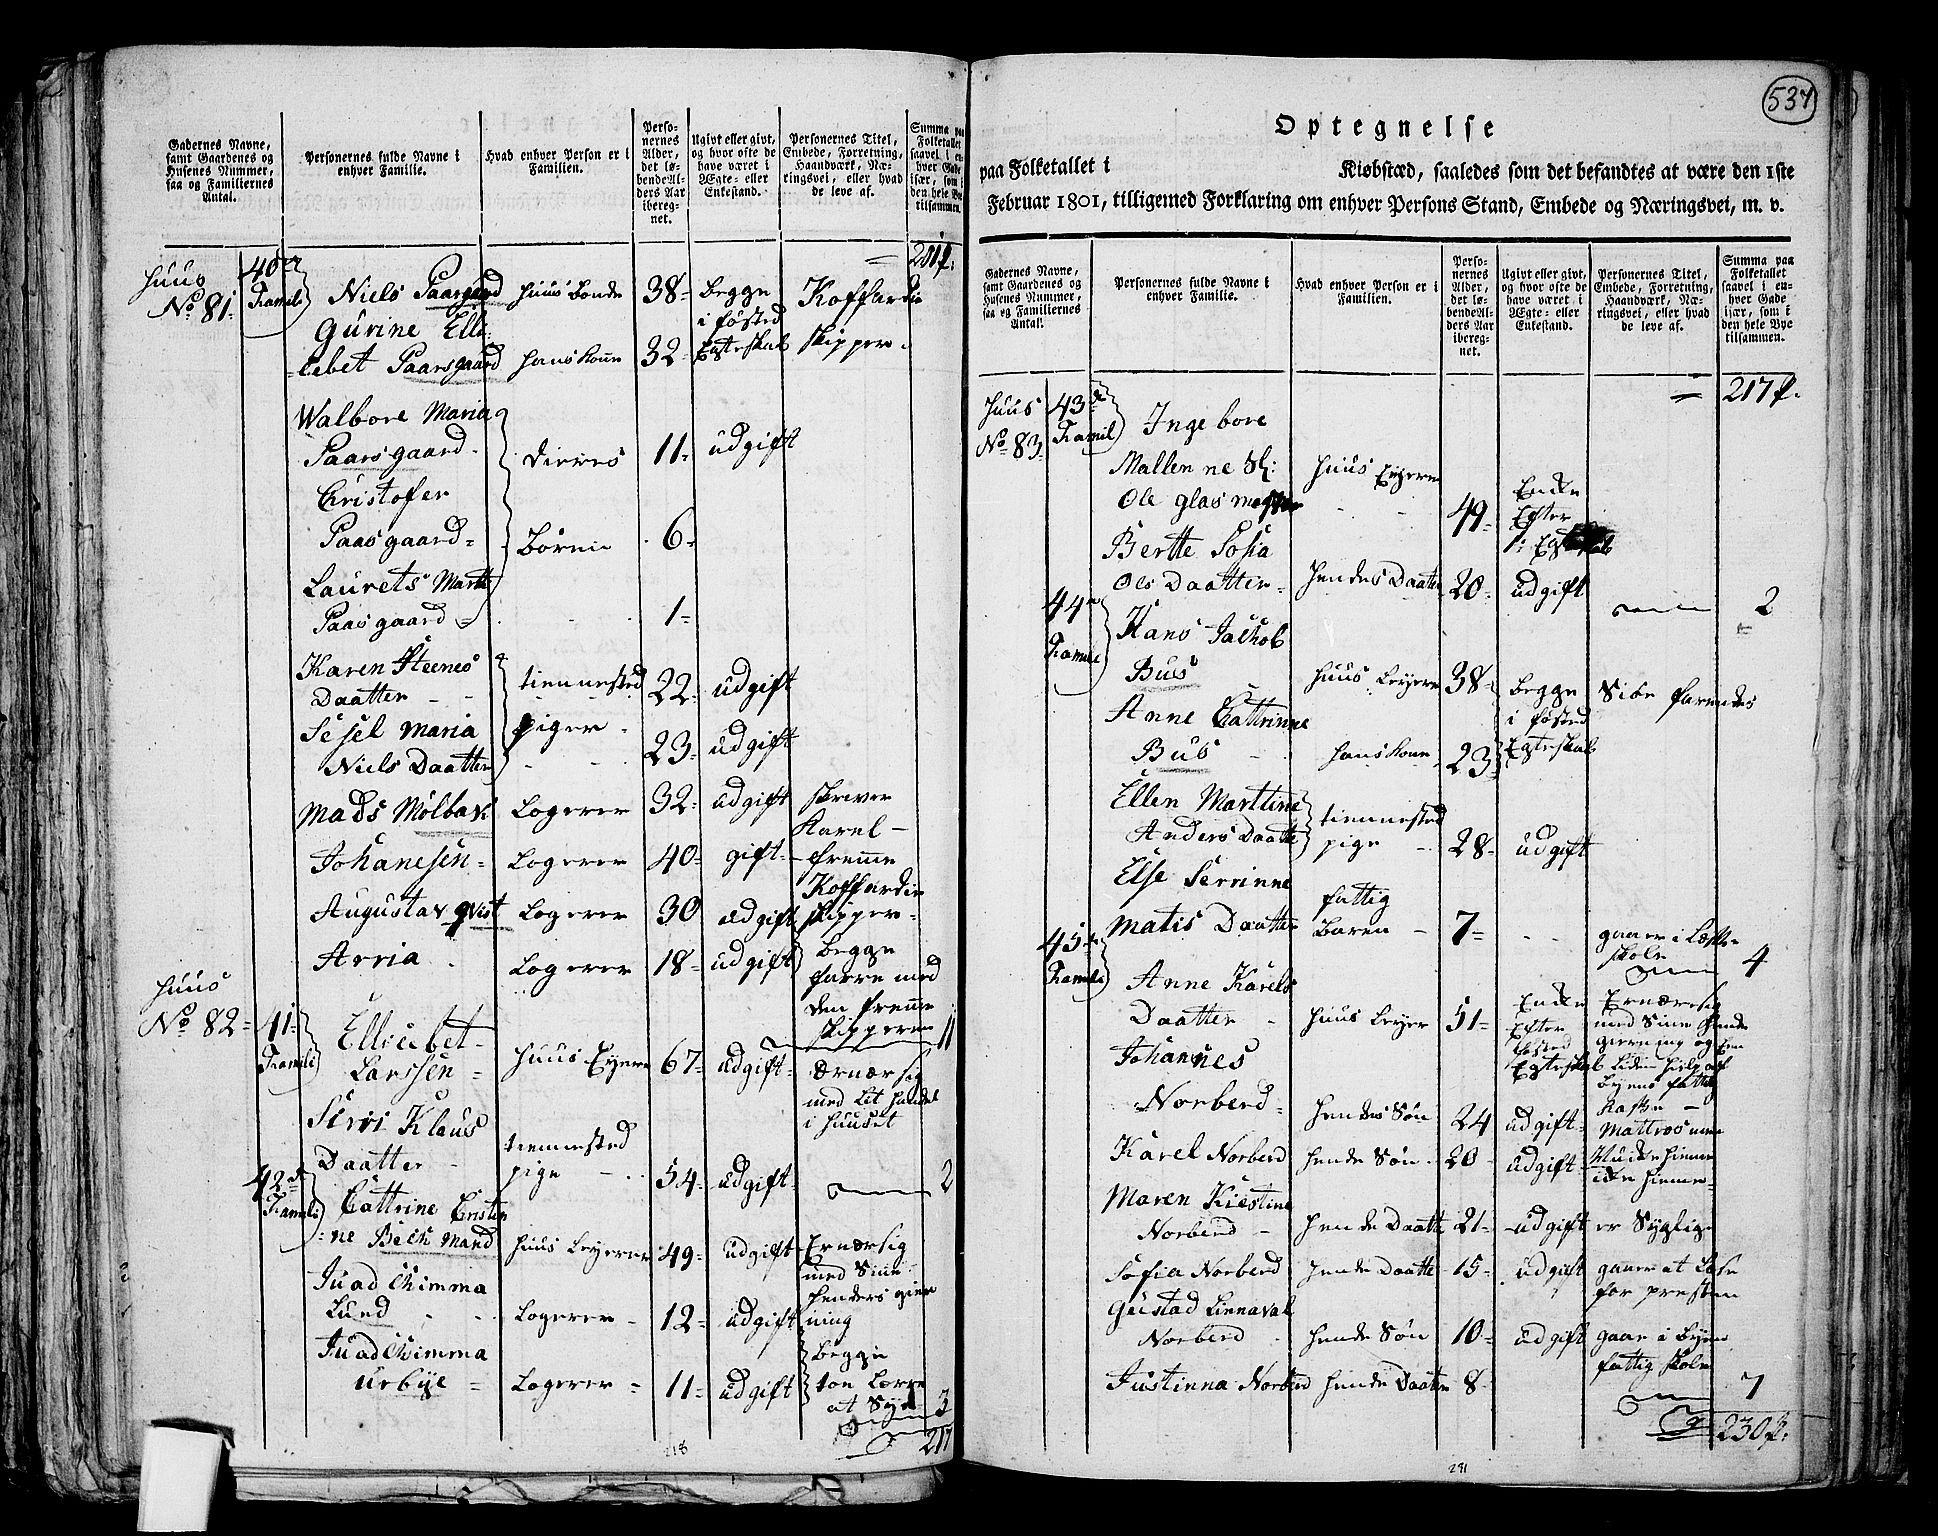 Gadernes Navne, samt Gaardenes og Husenes Nummer, saa og Familiernes Antal.
Personernes fulde Navne i enhver Familie.
Hvad enhver Person er i Familien.
Personernes Alder, det løbende Alders Aar iberegnet.
Ugivt eller givt, og hvor ofte de have været i Ægte- eller Enkestand.
Personernes Titel, Embede, Forretning, Haandværk, Næringsvei, eller hvad de leve af.
Summa paa Folketallet saavel i enhver Gade især, som i den hele Bye tilsammen.
= 201 f:
Huus No 81- 40de Famili Niels Paarsgaard Huus Bonde 38- begge i føsted Egteskab Koffardie skipper
Gurine Elle
=lebet Paarsgaard hans kone 32-
Walbore Maria
Paarsgaard- Dieres 11- udgift
Cristofer
Paasgaard= Børnn 6-
Laurets Martte
Paasgaard = 1-
Karen Steenes
Daatter tiennested 22- udgift
Sesel Maria piger
Niels Daatter 23- udgift
Mads Mølbak Logerer 32- udgift skrever
Johanesen- Logerer 40- gift- Karel- fremme
Augustav qvist Logerer 30 udgift Koffardie skipper-
Arria Logerer 18- udgift begge farre med den fremme skipperen 11
Huus No 82= 41- Famili Ellsebet-
Larssen- Huus Eyere 67- udgift- Ernærsig med Lit handel i huuset
Sirri Klaus
Daatter tiennested pige 54- udgift- 2
42de Famili Cattrine Cristen
=ne Beck mand Huus Leyerer 49- udgift- Ernærsig med Sine henders gierning
Juad Chimma
Lund Logerer- 12- udgift
Juad Chimma
urbye = Logerer= 11- udgift begge ton Lærre at Sye 3
217
218
537
Optegnelse
paa Folketallet i Kiøbstæd, saaledes som det befandtes at være den 1ste
Februar 1801, tilligemed Forklaring om enhver Persons Stand, Embede og Næringsvei, m. v.
Gadernes Navne, samt Gaardenes og Husenes Nummer, saa og Familiernes Antal.
Personernes fulde Navne i enhver Familie.
Hvad enhver Person er i Familien.
Personernes Alder, det løbende Alders Aar iberegnet.
Ugivt eller givt, og hvor ofte de have været i Ægte- eller Enkestand.
Personernes Titel, Embede, Forretning, Haandværk, Næringsvei, eller hvad de leve af.
Summa paa Folketallet saavel i enhver Gade især, som i den hele Bye tilsammen.
= 217 f.
Huus No 83- 43de Famil Ingebore
Mallenne
Ole glas mester Huus Eyere 49- Encke Efter Egteskab
Bertte Sofia
Ols Daatter- Hendes Daatter 20- udgift 2
44de Famile Hans Jackob
Bus Huus Leyere 38- begge i føsted Egteskab Sibe farendes
Anne Cattrinne
Bus hans kone 23
Ellen Marttine
Anders Daatte tiennested pige 28- udgift
Else Serrinne
Matis Daatter fattig Baren 7- gaaer i Læsse skole 4
45de Famile Anne Karels
Daatter Huus Leyer 51- Encke Efter føsted Egteskab Ernærsig med Sine hende gierning og Een Liden hielp af byens fattig kasse
Johannes
Norberd- Hendes Søn 24 udgift- Mattros
Karel Norberd Hende Søn 20- udgift
Maren Kiestine
Norberd- Hende Daatte 21- udgift er Syglig
Sofia Norberd Hende Daatte 15- udgift gaaer at Læse for presten
Gustad Linnaval
Norberd Hende Søn 10- udgift gaar i byens fattig skole
Justinna Norberd Hende Daatter 8- 7
230 f:
281